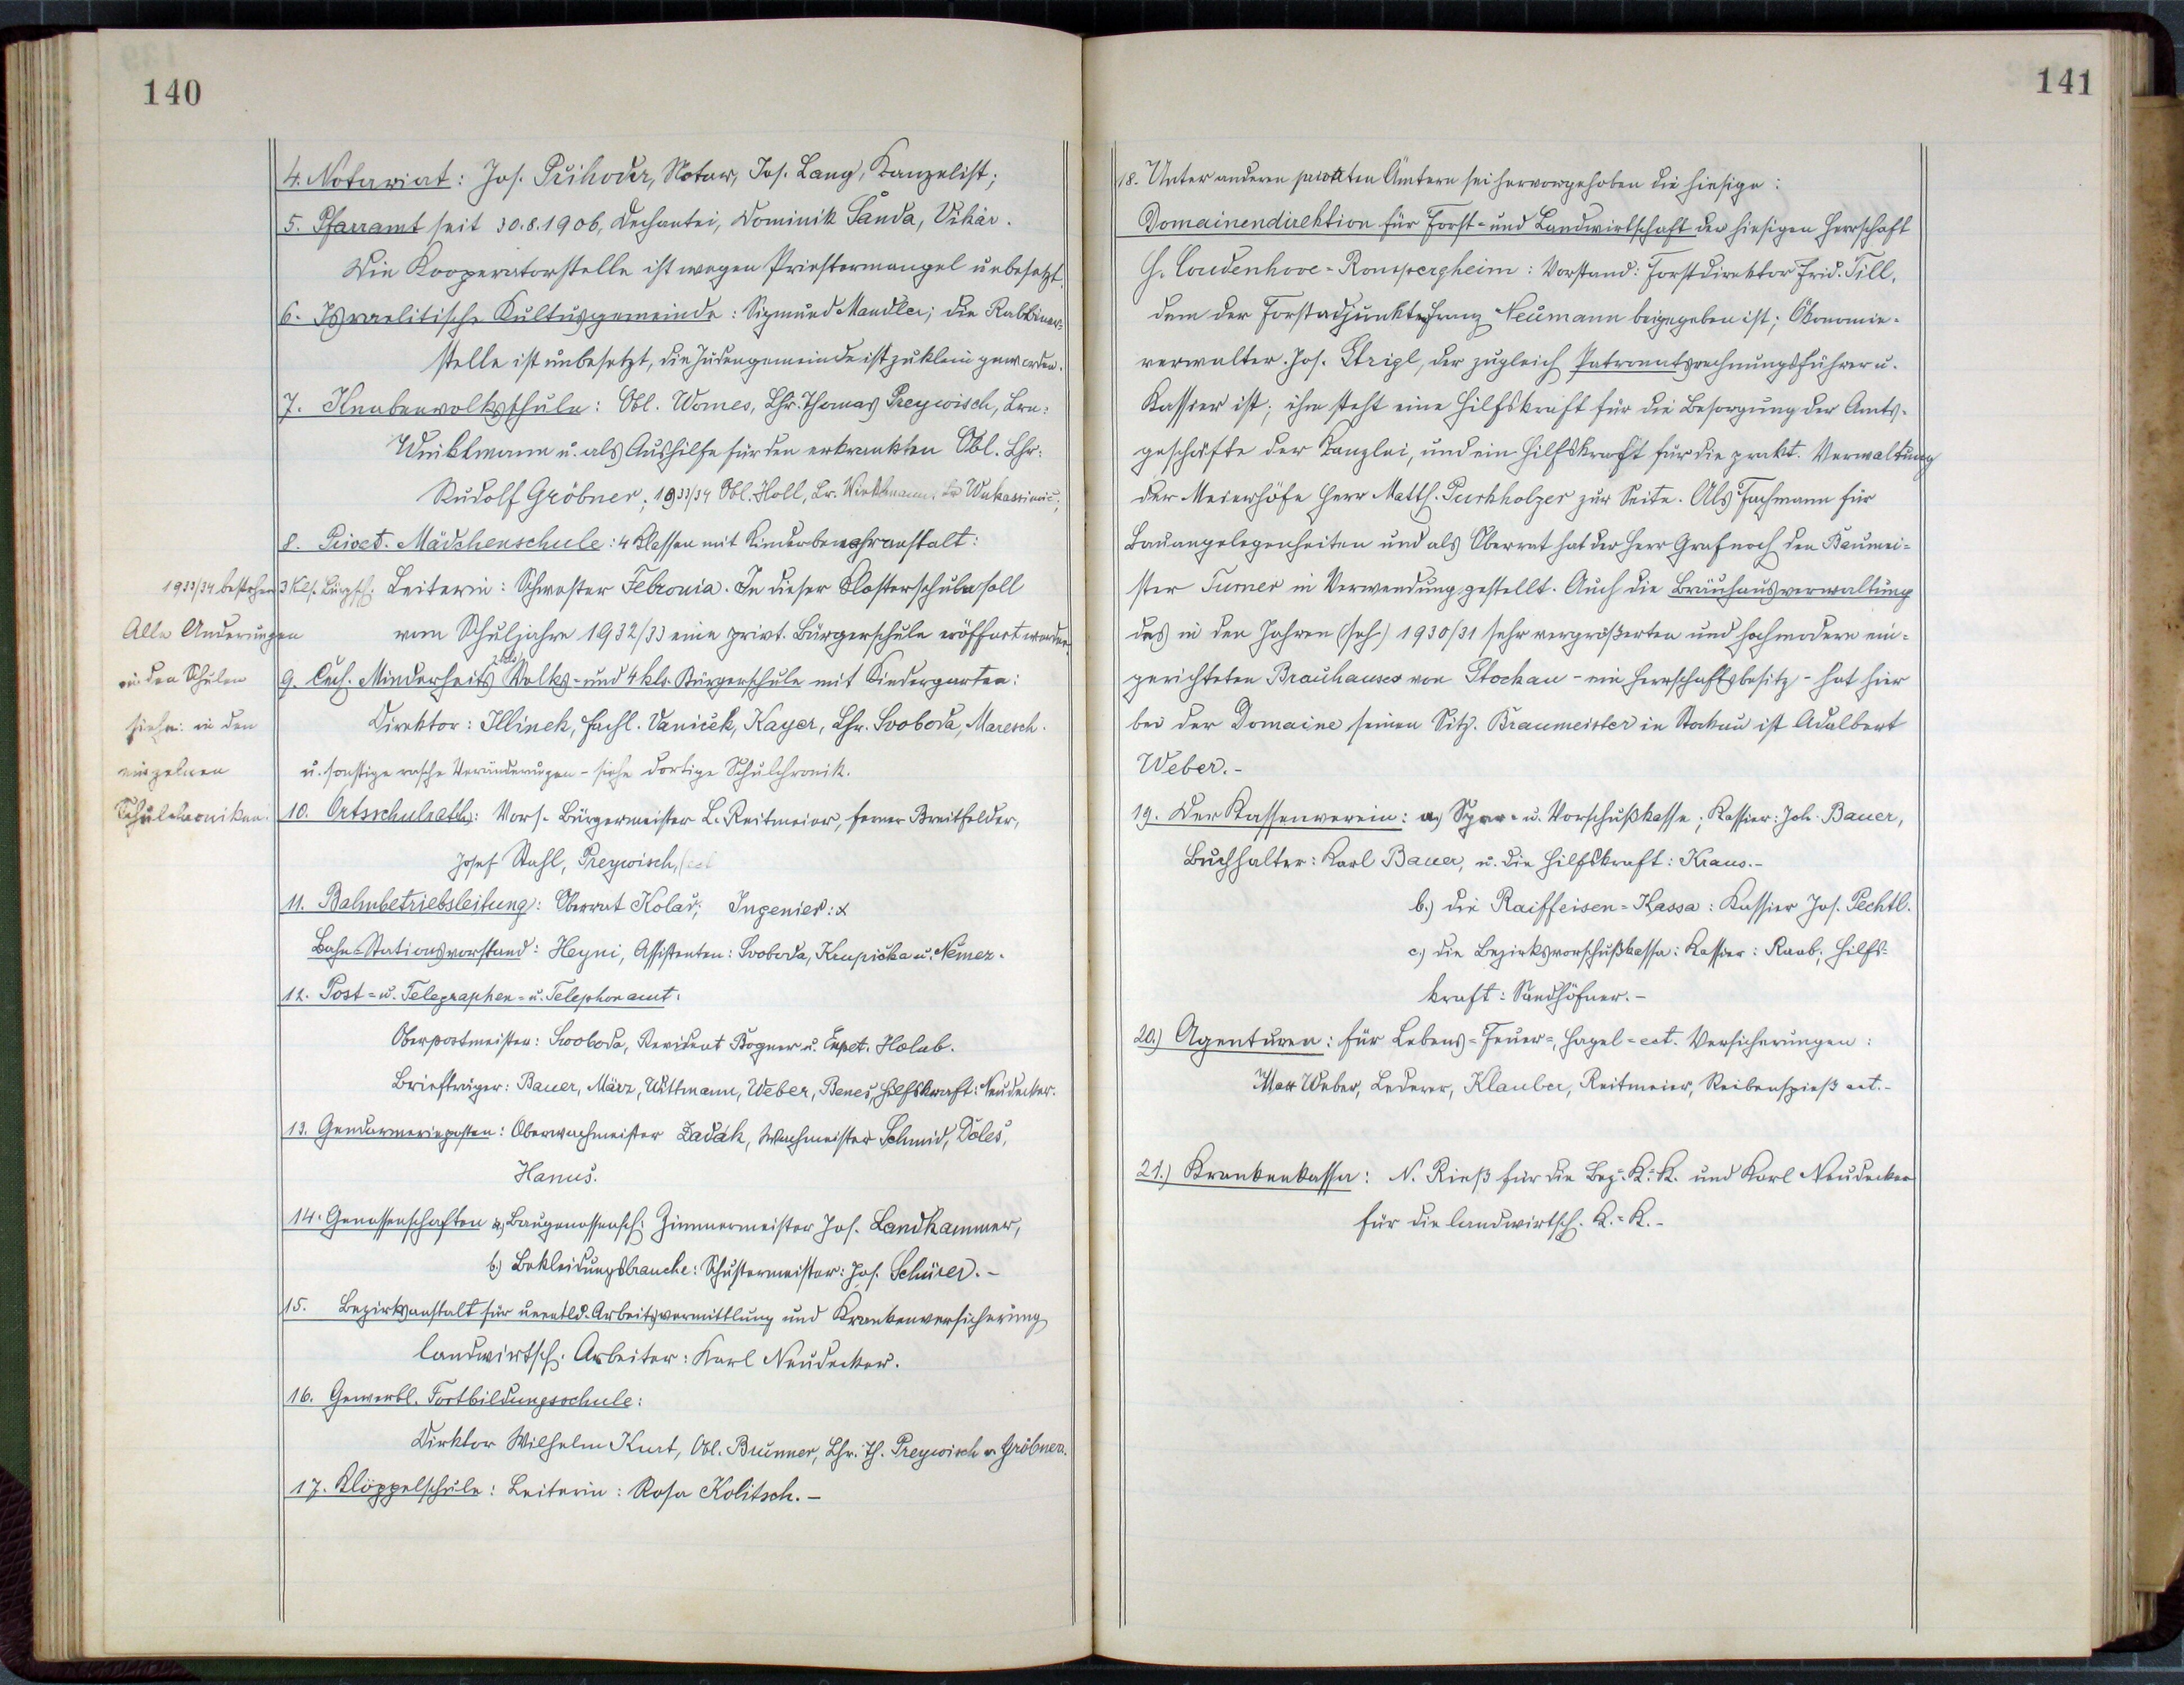 140
4. Notariat: Jos. Přihoda, Notar, Jos. Lang, Kanzelist;
5. Pfarramt seit 30.8.1906, Dechantei, Dominik Šanda, Vikär.
Die Kooperatorstelle ist wegen Priestermangel unbesetzt.
6. Israelitische Kultusgemeinde: Sigmund Mandler; die Rabbiner=
stelle ist unbesetzt, die Judengemeinde ist zu klein geworden.
7. Knabenvolksschule: Obl. Womes, Lhr. Thomas Preywisch, Lrn:
Winklmann u. als Aushilfe für den erkrankten Obl. Lhr:
Rudolf Gröbner; 1933/34 Obl. Holl, Lr. Winklmann, Lr. Wukassinović;
8. Privat. Mädchenschule: 4 Klassen mit Kinderbewahranstalt:
1933/34 bestehen 3 Kls. Bürgsch. Leiterin: Schwester Febronia. In dieser Klosterschule soll
Alle Änderungen
in den Schulen
siehe: in den
einzelnen
Schulchroniken.
vom Schuljahre 1932/33 eine privt. Bürgerschule eröffnet werden.
9. Čech. Minderheits Volks- und 4 kls. Bürgerschule mit Kindergarten:
Direktor: Illinek, Fachl. Vaniček, Kayer, Lhr. Svoboda, Maresch.
u. sonstige rasche Veränderungen - siehe dortige Schulchronik.
10. Ortsschulrath: Vors. Bürgermeister L. Reitmeier, ferner Breitfelder,
Josef Stahl, Preywisch,
11. Bahnbetriebsleitung: Oberrat Kolař, Ingenier: x
Bahn-Stationsvorstand: Heyni, Assistenten: Svoboda, Krupička u. Němez.
12. Post= u. Telegraphen= u. Telephonamt:
Oberpostmeister: Swoboda, Revident Bogner u. Expet. Holub.
Briefträger: Bauer, März, Wittmann, Weber, Beneš, Hilfskraft: Neudecker.
13. Gendarmerieposten: Oberwachmeister Zadák, Wachmeister Schmid, Doleš,
Hanuš.
14. Genossenschaften a) Baugenossensch. Zimmermeister Jos. Landkammer,
b.) Bekleidungsbranche: Schustermeister: Jos. Schürer. -
15. Bezirksanstalt für unentld. Arbeitsvermittlung und Krankenversicherung
landwirtsch. Arbeiter: Karl Neudecker.
16. Gewerbl. Fortbildungsschule:
Dirktor Wilhelm Kurt, Obl. Brunner, Lhr. Th. Preywisch u. Gröbner.
17. Klöppelschule: Leiterin: Rosa Kolitsch. -
141
18. Unter anderen privaten Ämtern sei hervorgehoben die hiesige:
Domainendirektion für Forst= und Landwirtschaft der hiesigen Herrschaft
G. Coudenhove=Ronspergheim: Vorstand: Forstdirektor Frid. Till,
dem der Forstadjunkte Franz Neumann beigegeben ist; Ökonomie-
verwalter Jos. Strigl, der zugleich Patronatsrechnungsführer u.
Kassier ist; ihm steht eine Hilfskraft für die Besorgung der Amts-
geschäfte der Kanzlei, und ein Hilfskraft für die prakt. Verwaltung
der Meierhöfe Herr Matth. Purkholzer zur Seite. Als Fachmann für
Bauangelegenheiten und als Oberrat hat der Herr Graf noch den Baumei=
ster Turner in Verwendung gestellt. Auch die Bräuhausverwaltung
des in den Jahren (sch) 1930/31 sehr vergrößerten und hochmodern ein=
gerichteten Brauhauses von Stockau - ein Herrschaftsbesitz - hat hier
bei der Domaine seinen Sitz. Braumeister in Stockau ist Adalbert
Weber. -
19. Der Kassenverein: a) Spar- u. Vorschußkasse; Kassier: Joh. Bauer,
Buchhalter: Karl Bauer, u. die Hilfskraft: Kraus. -
b.) die Raiffeisen=Kassa: Kassier Jos. Pechtl.
c.) die Bezirksvorschußkassa: Kassier: Raab; Hilfs=
kraft: Sandhöfner. -
20.) Agenturen: für Lebens=Feuer=, Hagel= ect. Versicherungen:
Max Weber, Lederer, Klauber, Reitmeier, Reibenspieß ect. -
21.) Krankenkassa: N. Rieß für die Bez=K.=K. und Karl Neudecker
für die landwirtsch. K.=K. -